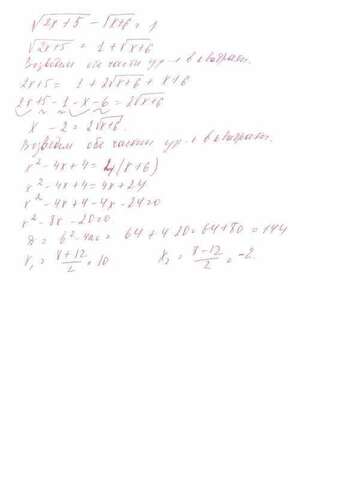 √2x+5 - √x+6 = 1
√2x+5 = 1+√x+6
Возведем обе части ур-я в квадрат.
2x+5 = 1+2√x+6 + x+6
2x+5-1-x-6=2√x+6
x-2=2√x+6.
Возведем обе части ур-я в квадрат.
x²-4x+4=4(x+6)
x²-4x+4=4x+24
x²-4x+4-4x-24=0
x²-8x-20=0.
D = b²-4ac = 64+4·20=64+80=144
x₁ = 8+12/2 = 10 x₂ = 8-12/2 = -2.